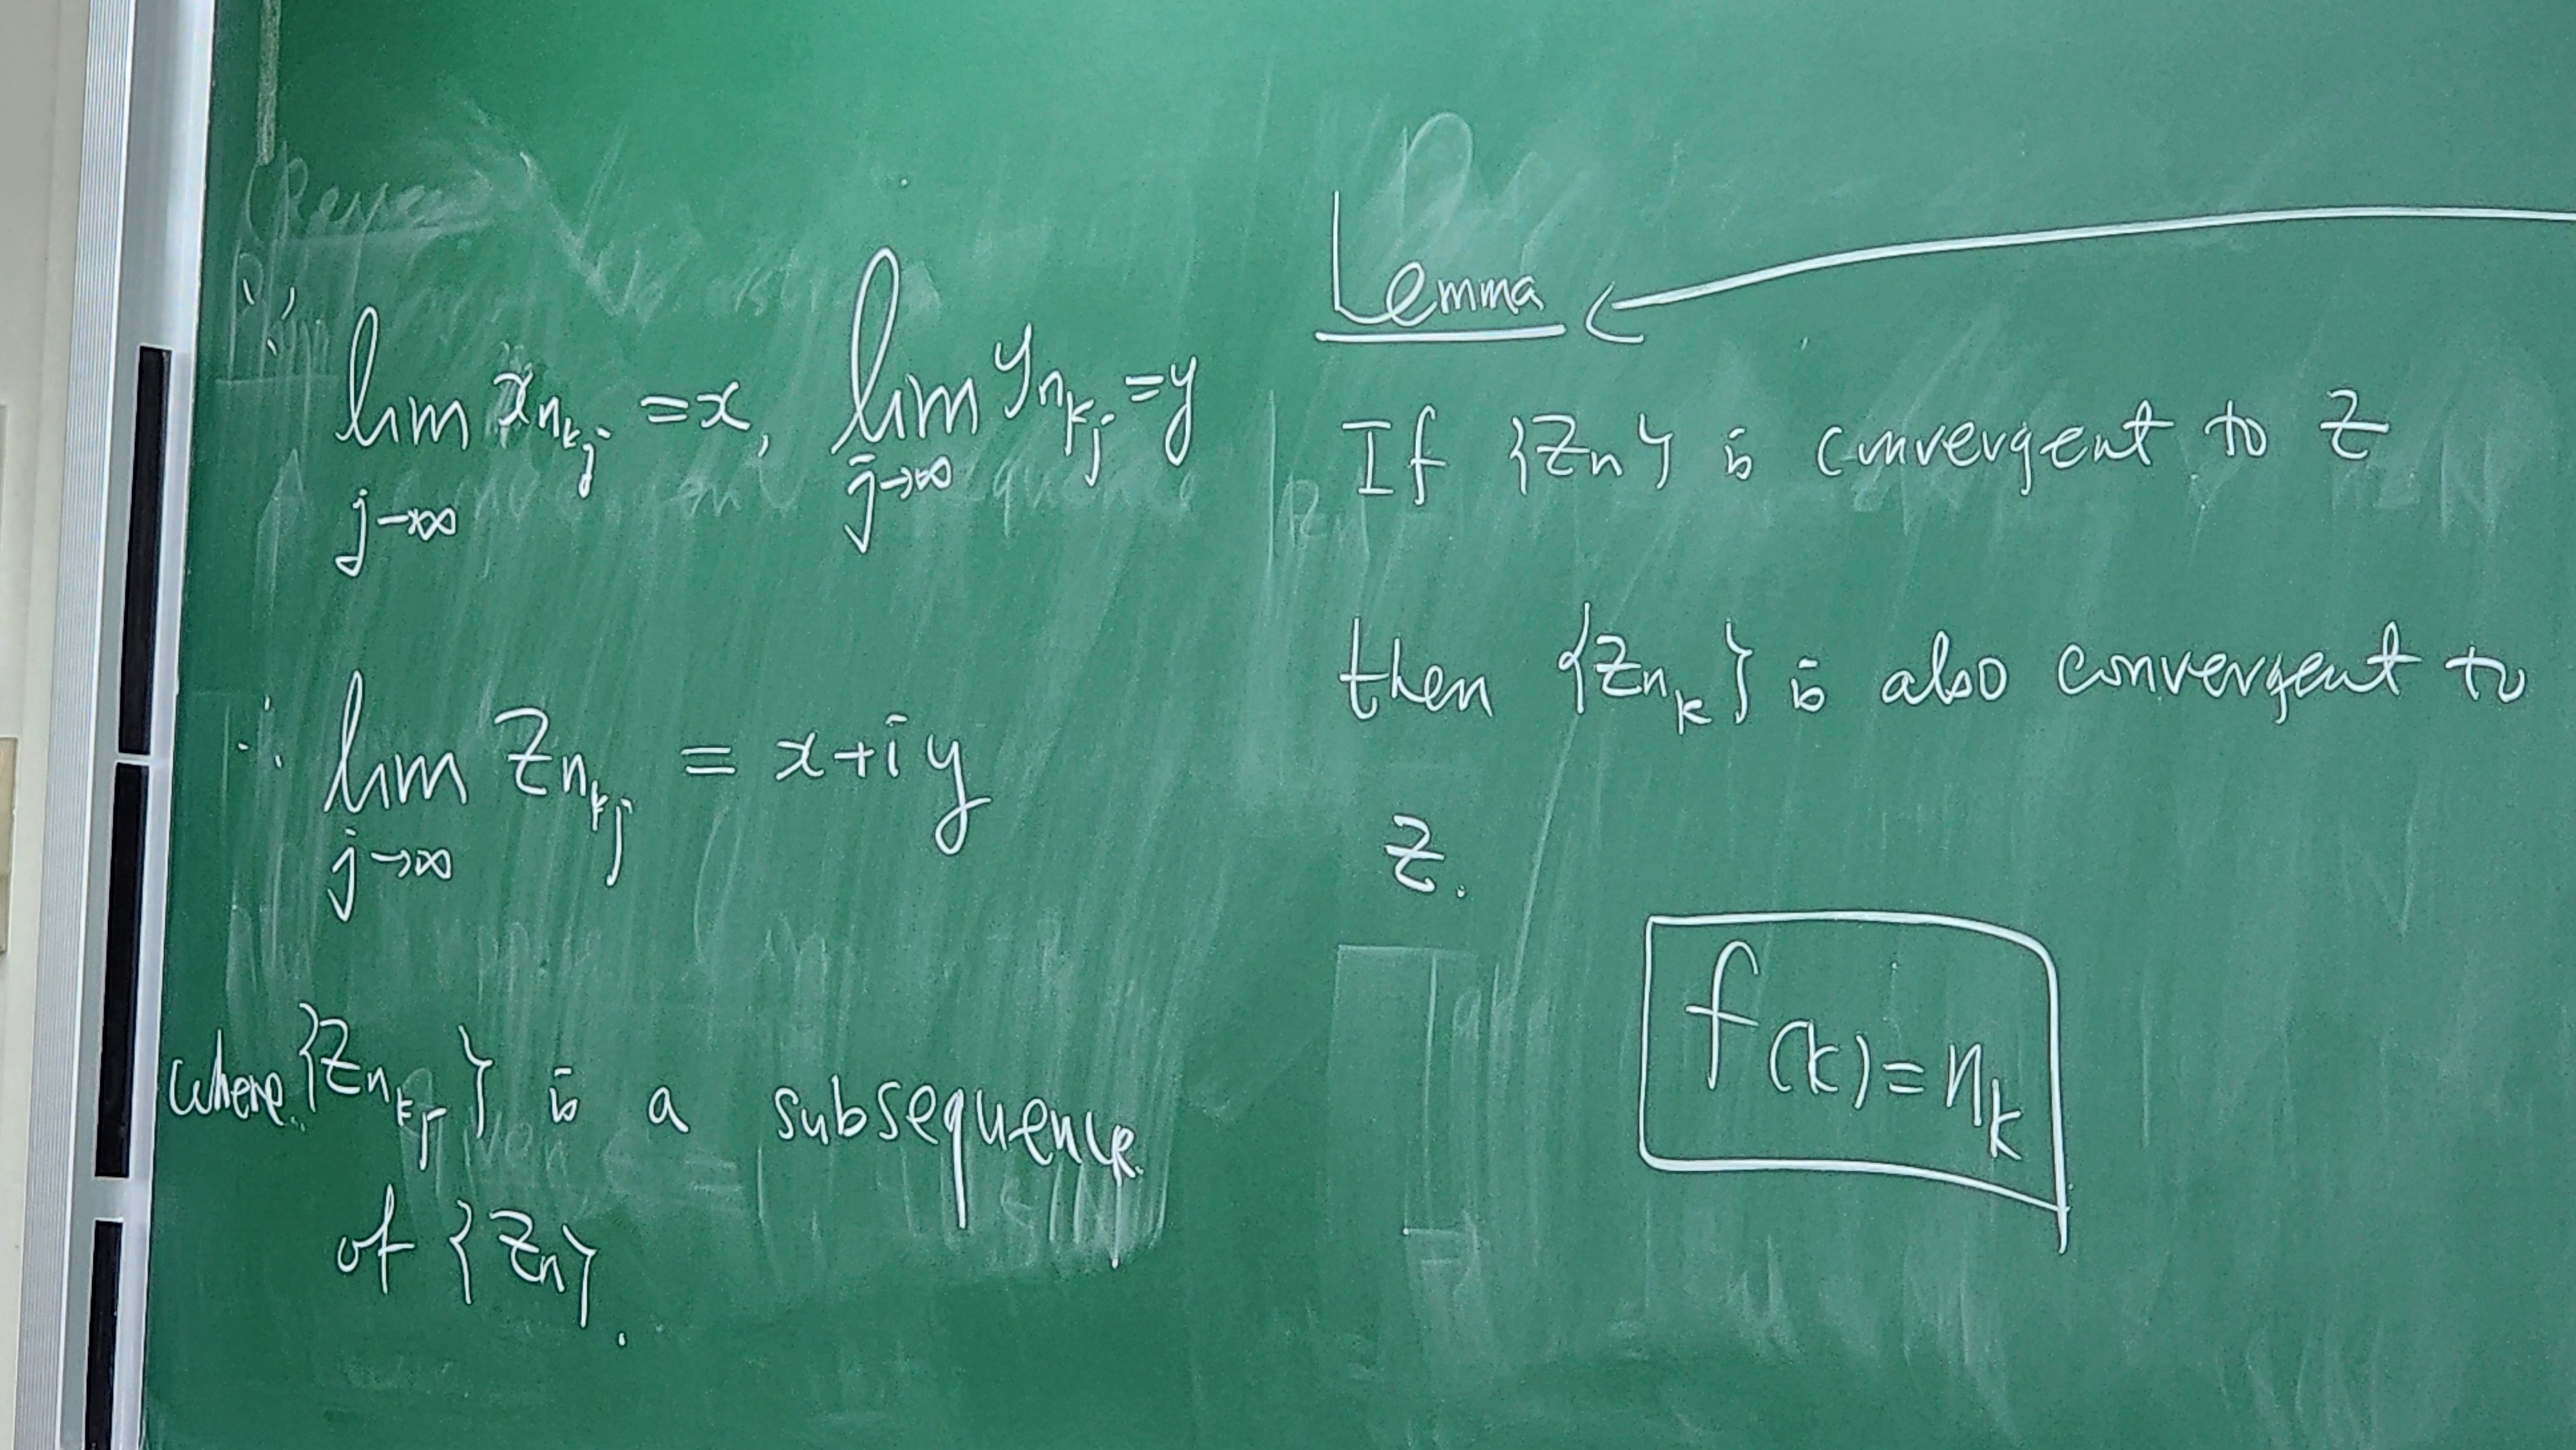 ∵ lim x_{n_{k_j}} = x, lim y_{n_{k_j}} = y
j→∞ j→∞
∴ lim z_{n_{k_j}} = x+iy
j→∞
where {z_{n_{k_j}}} is a subsequence
of {z_n}.
Lemma
If {z_n} is convergent to z
then {z_{n_k}} is also convergent to
z.
f(k)=n_k